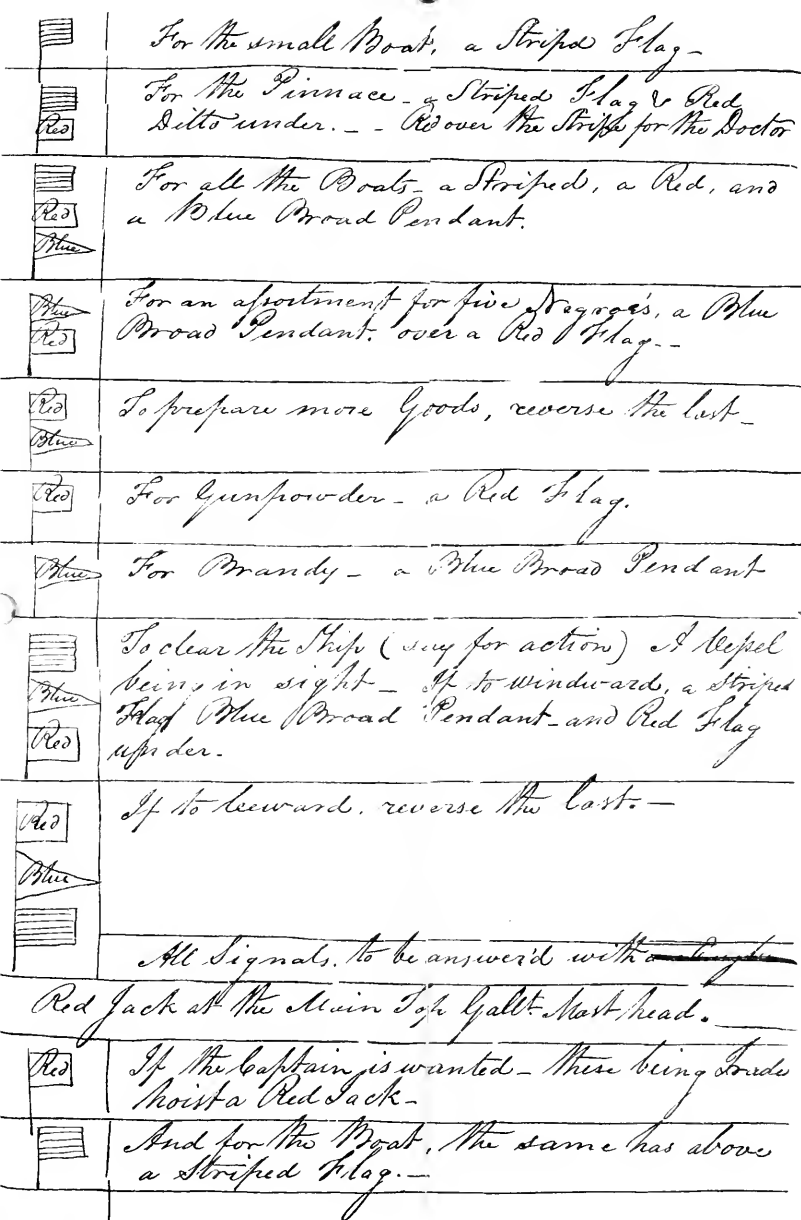 For the small Boat, a Stripd Flag -
For the Pinnace - a Striped Flag & Red
Red
Ditto under. - - Red over the Stripe for the Doctor
For all the Boats - a Striped, a Red, and
Red
a Blue Broad Pendant.
Blue
Blue
For an assortment for five Negroe's, a Blue
Red
Broad Pendant. over a Red Flag. - -
Red
To prepare more Goods, reverse the last -
Blue
Red
For Gunpowder - a Red Flag.
Blue
For Brandy - a Blue Broad Pendant
To clear the Ship (say for action) A Vessel
being in sight - If to windward, a Striped
Blue
Flag Blue Broad Pendant - and Red Flag
Red
under -
If to leeward. reverse the last. -
Red
Blue
All Signals. to be answer'd with
Red Jack at the Main Top Gallt. Mast head.
Red
If the Captain is wanted - there being Trade
hoist a Red Jack -
And for the Boat, the same has above
a Striped Flag. -